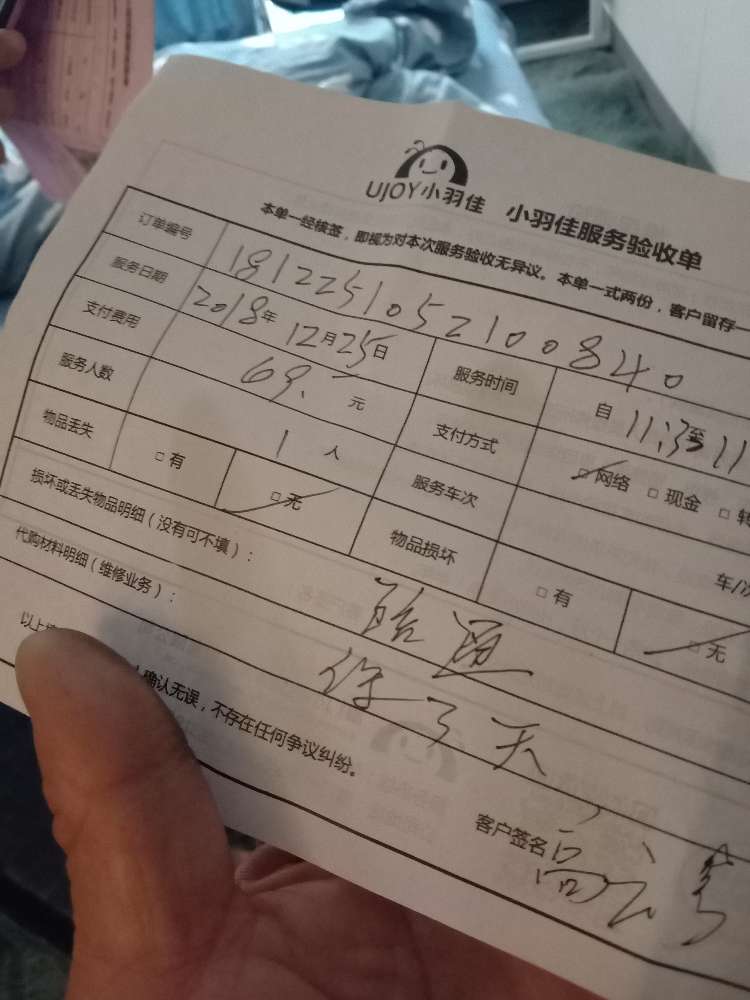 UJOY小羽佳 小羽佳服务验收单
本单一经核签，即视为对本次服务验收无异议。本单一式两份，客户留存一
订单编号 1812251052100840
服务日期 2018年12月25日 服务时间 自 11:30至11
支付费用 69.- 元 支付方式 □网络 □现金 □转
服务人数 1人 服务车次 车/次
物品丢失 □有 □无 物品损坏 □有 □无
损坏或丢失物品明细（没有可不填）：
代购材料明细（维修业务）：
疏通
保3天
以上 确认无误，不存在任何争议纠纷。
客户签名